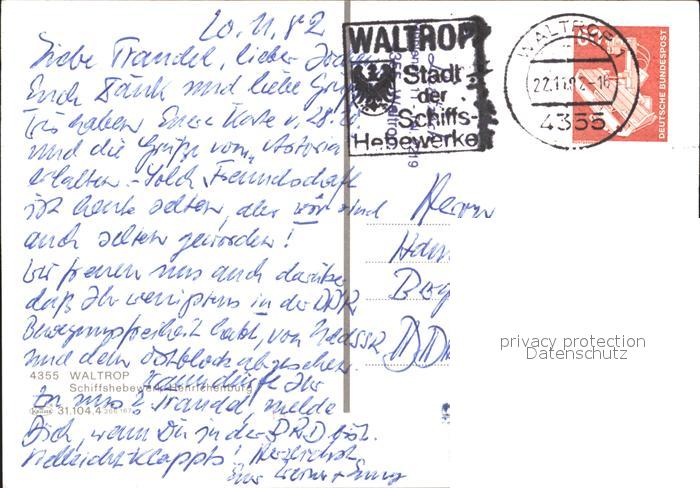 20.11.82
Liebe Trandel, lieber
Euch Dank und liebe Grüße
Wir haben Eure Karte v. 28.10.
und die Grüße vom Astoria
erhalten. Solch Freundschaft
ist heute selten, aber wir sind
auch selten geworden!
Wir freuen uns auch darüber
daß Ihr wenigstens in der DDR
Bewegungsfreiheit habt, von UdSSR
und dem Ostblock abgesehen.
Wann dürft Ihr
zu uns? Trandel, melde
Dich, wenn Du in der BRD bist.
Vielleicht klappts! Herzlichst
Eure
4355 WALTROP
Schiffshebewerk Henrichenburg
31.104.4
WALTROP
Stadt
der
Schiffs-
Hebewerke
WALTROP
22.11.82-16
4355
60
DEUTSCHE BUNDESPOST
Herrn
privacy protection
Datenschutz